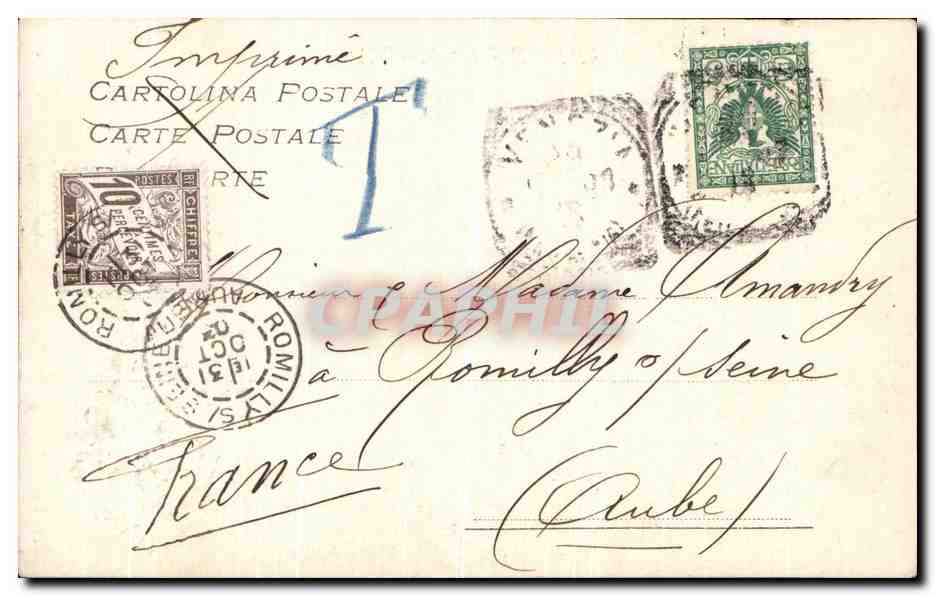 Imprimé.
CARTOLINA POSTALE
CARTE POSTALE
RTE
T
VENEZIA
POSTES
10
CENTIMES
PERCEVOIR
CHIFFRE
ROMILLY S/ SEINE
AUBE
1E
31
OCT
CPAPHIL
Monsieur & Madame Amandry
à Romilly s/ Seine
(Aube)
France